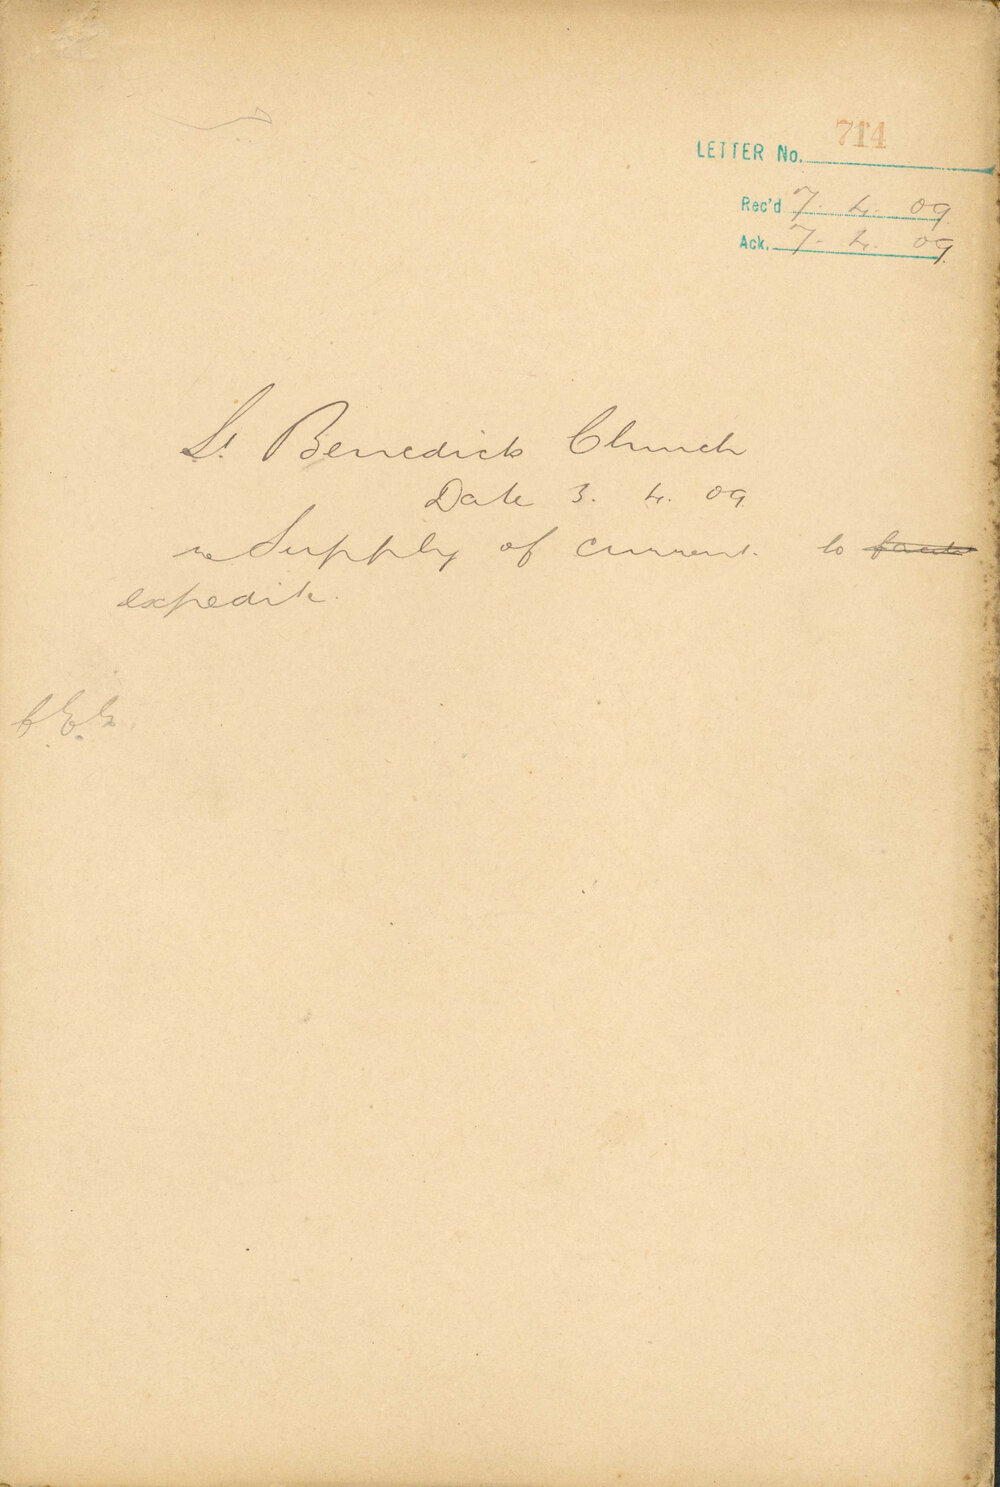 LETTER No. 714
Rec'd 7. 4. 09
Ack. 7. 4. 09
St Benedicts Church
Date 3. 4. 09
re Supply of current to
expedite.